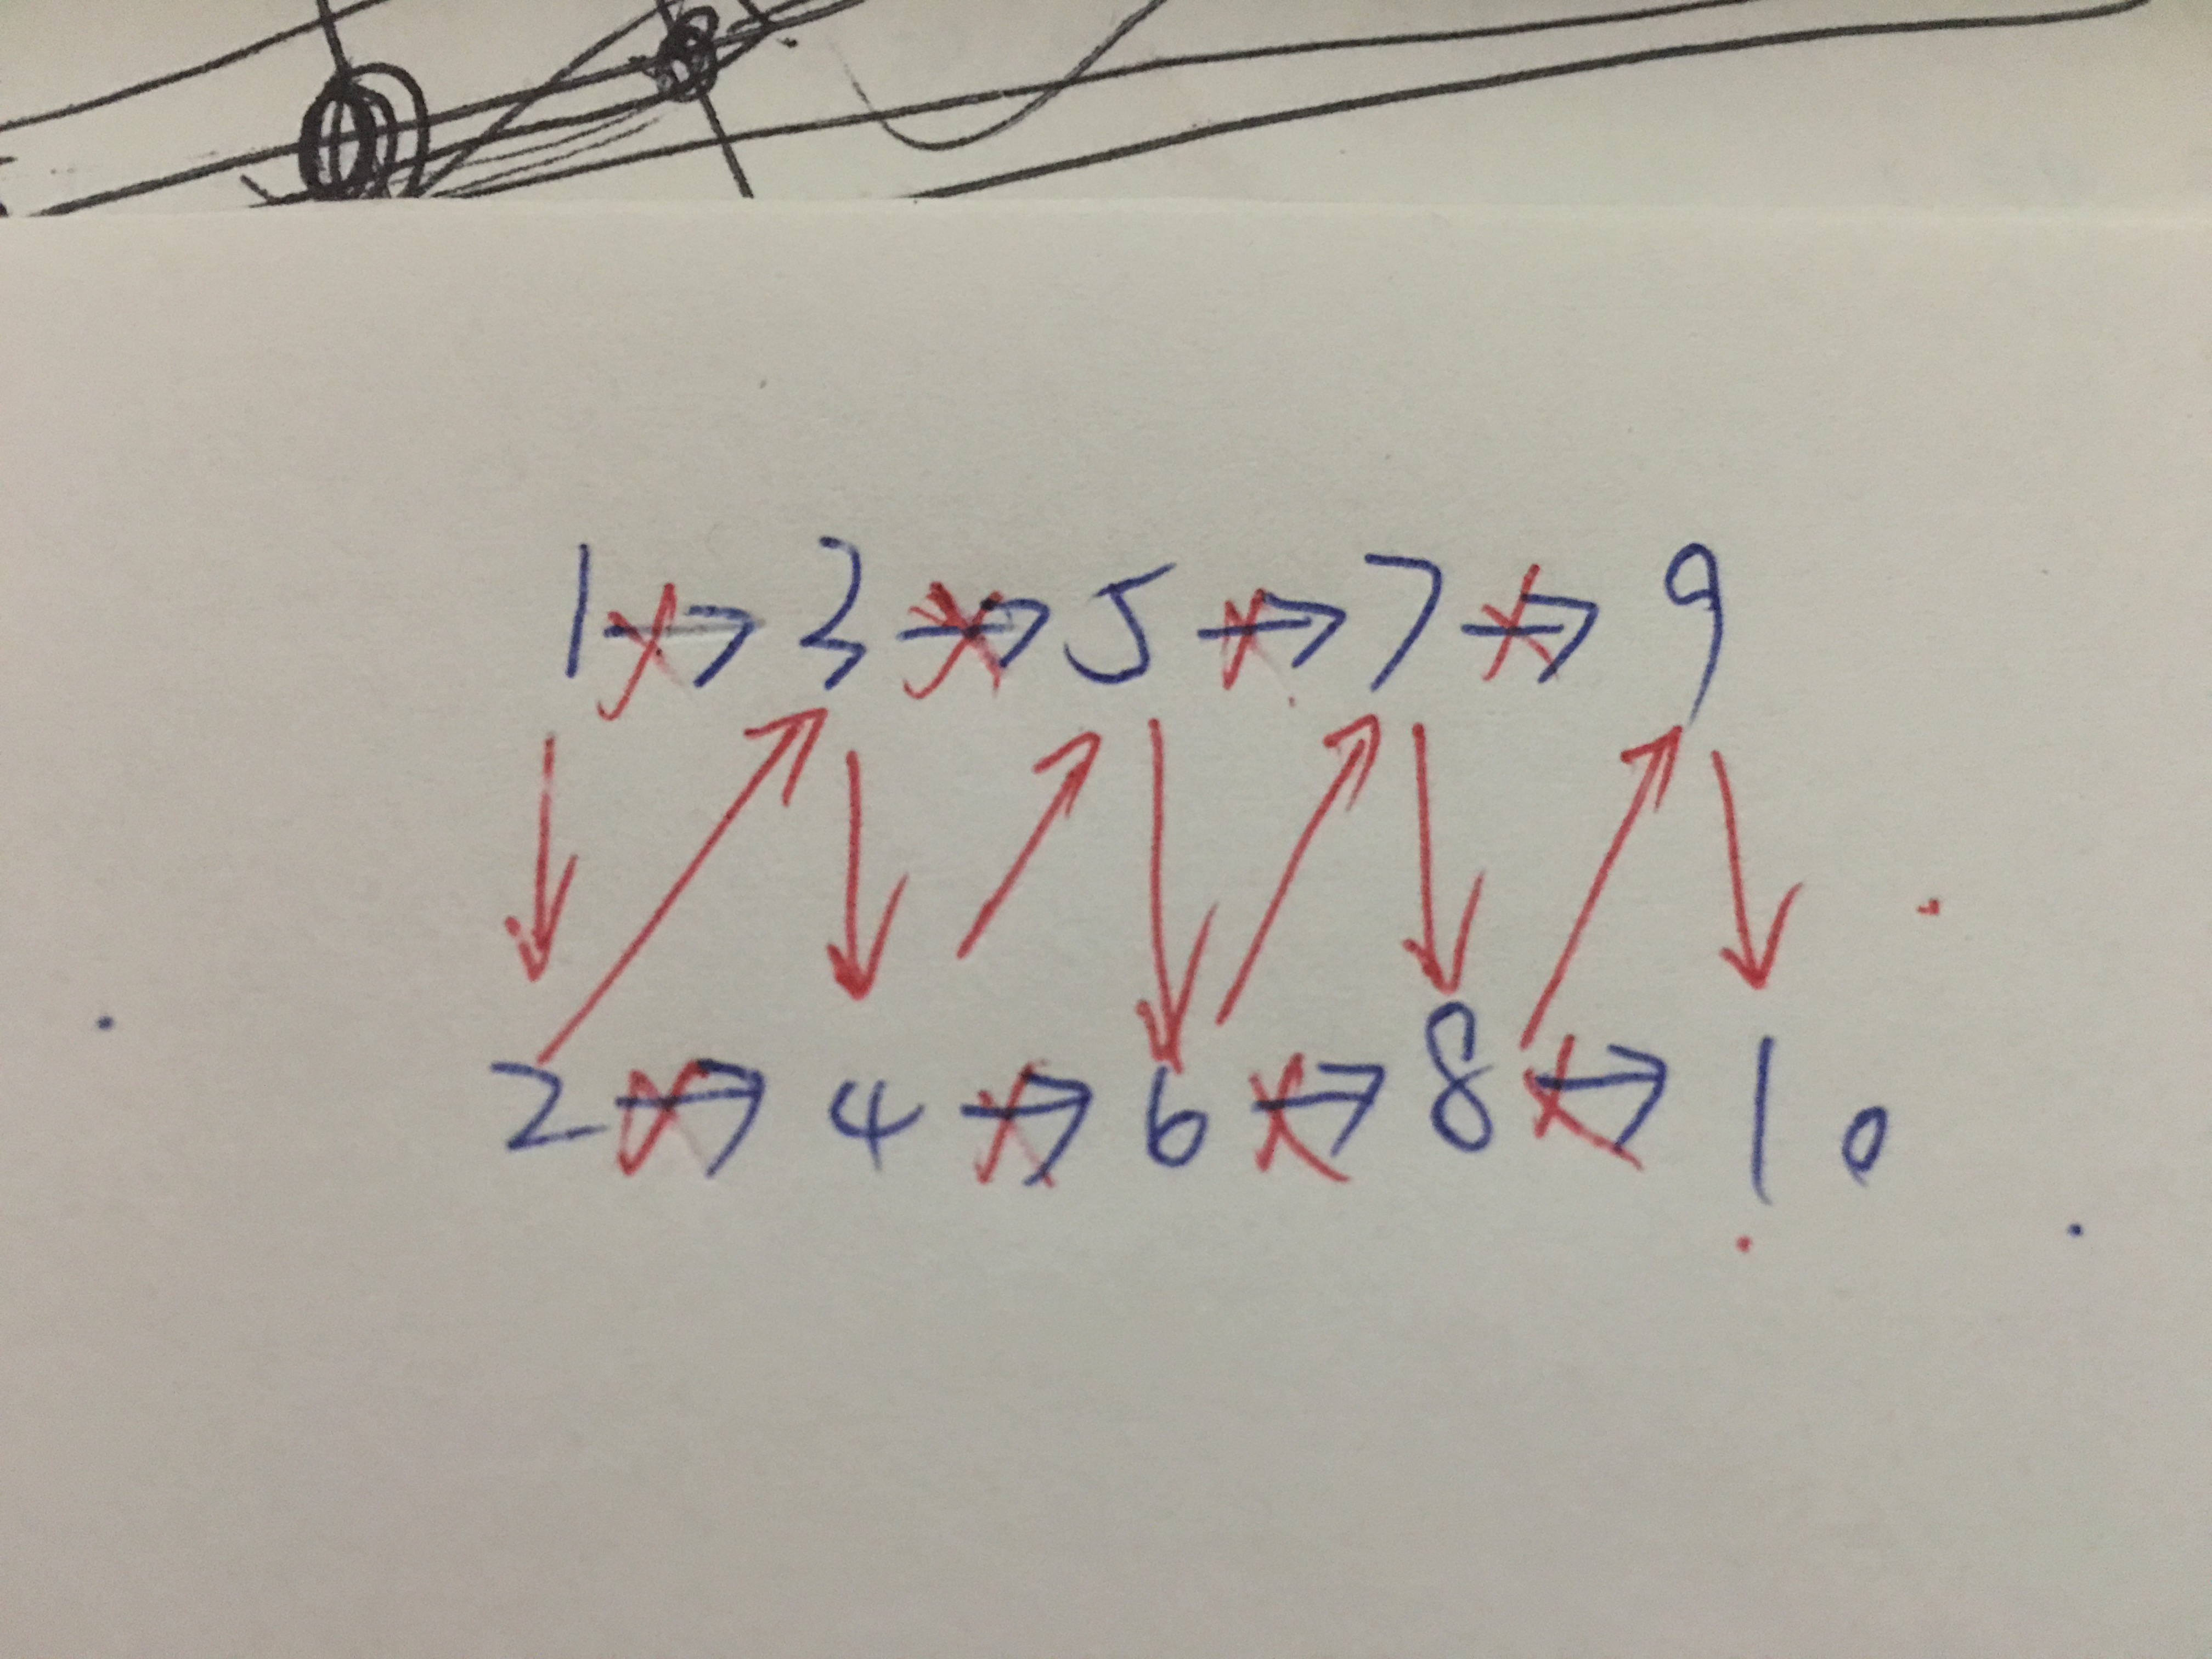 1 → 3 → 5 → 7 → 9
2 → 4 → 6 → 8 → 10